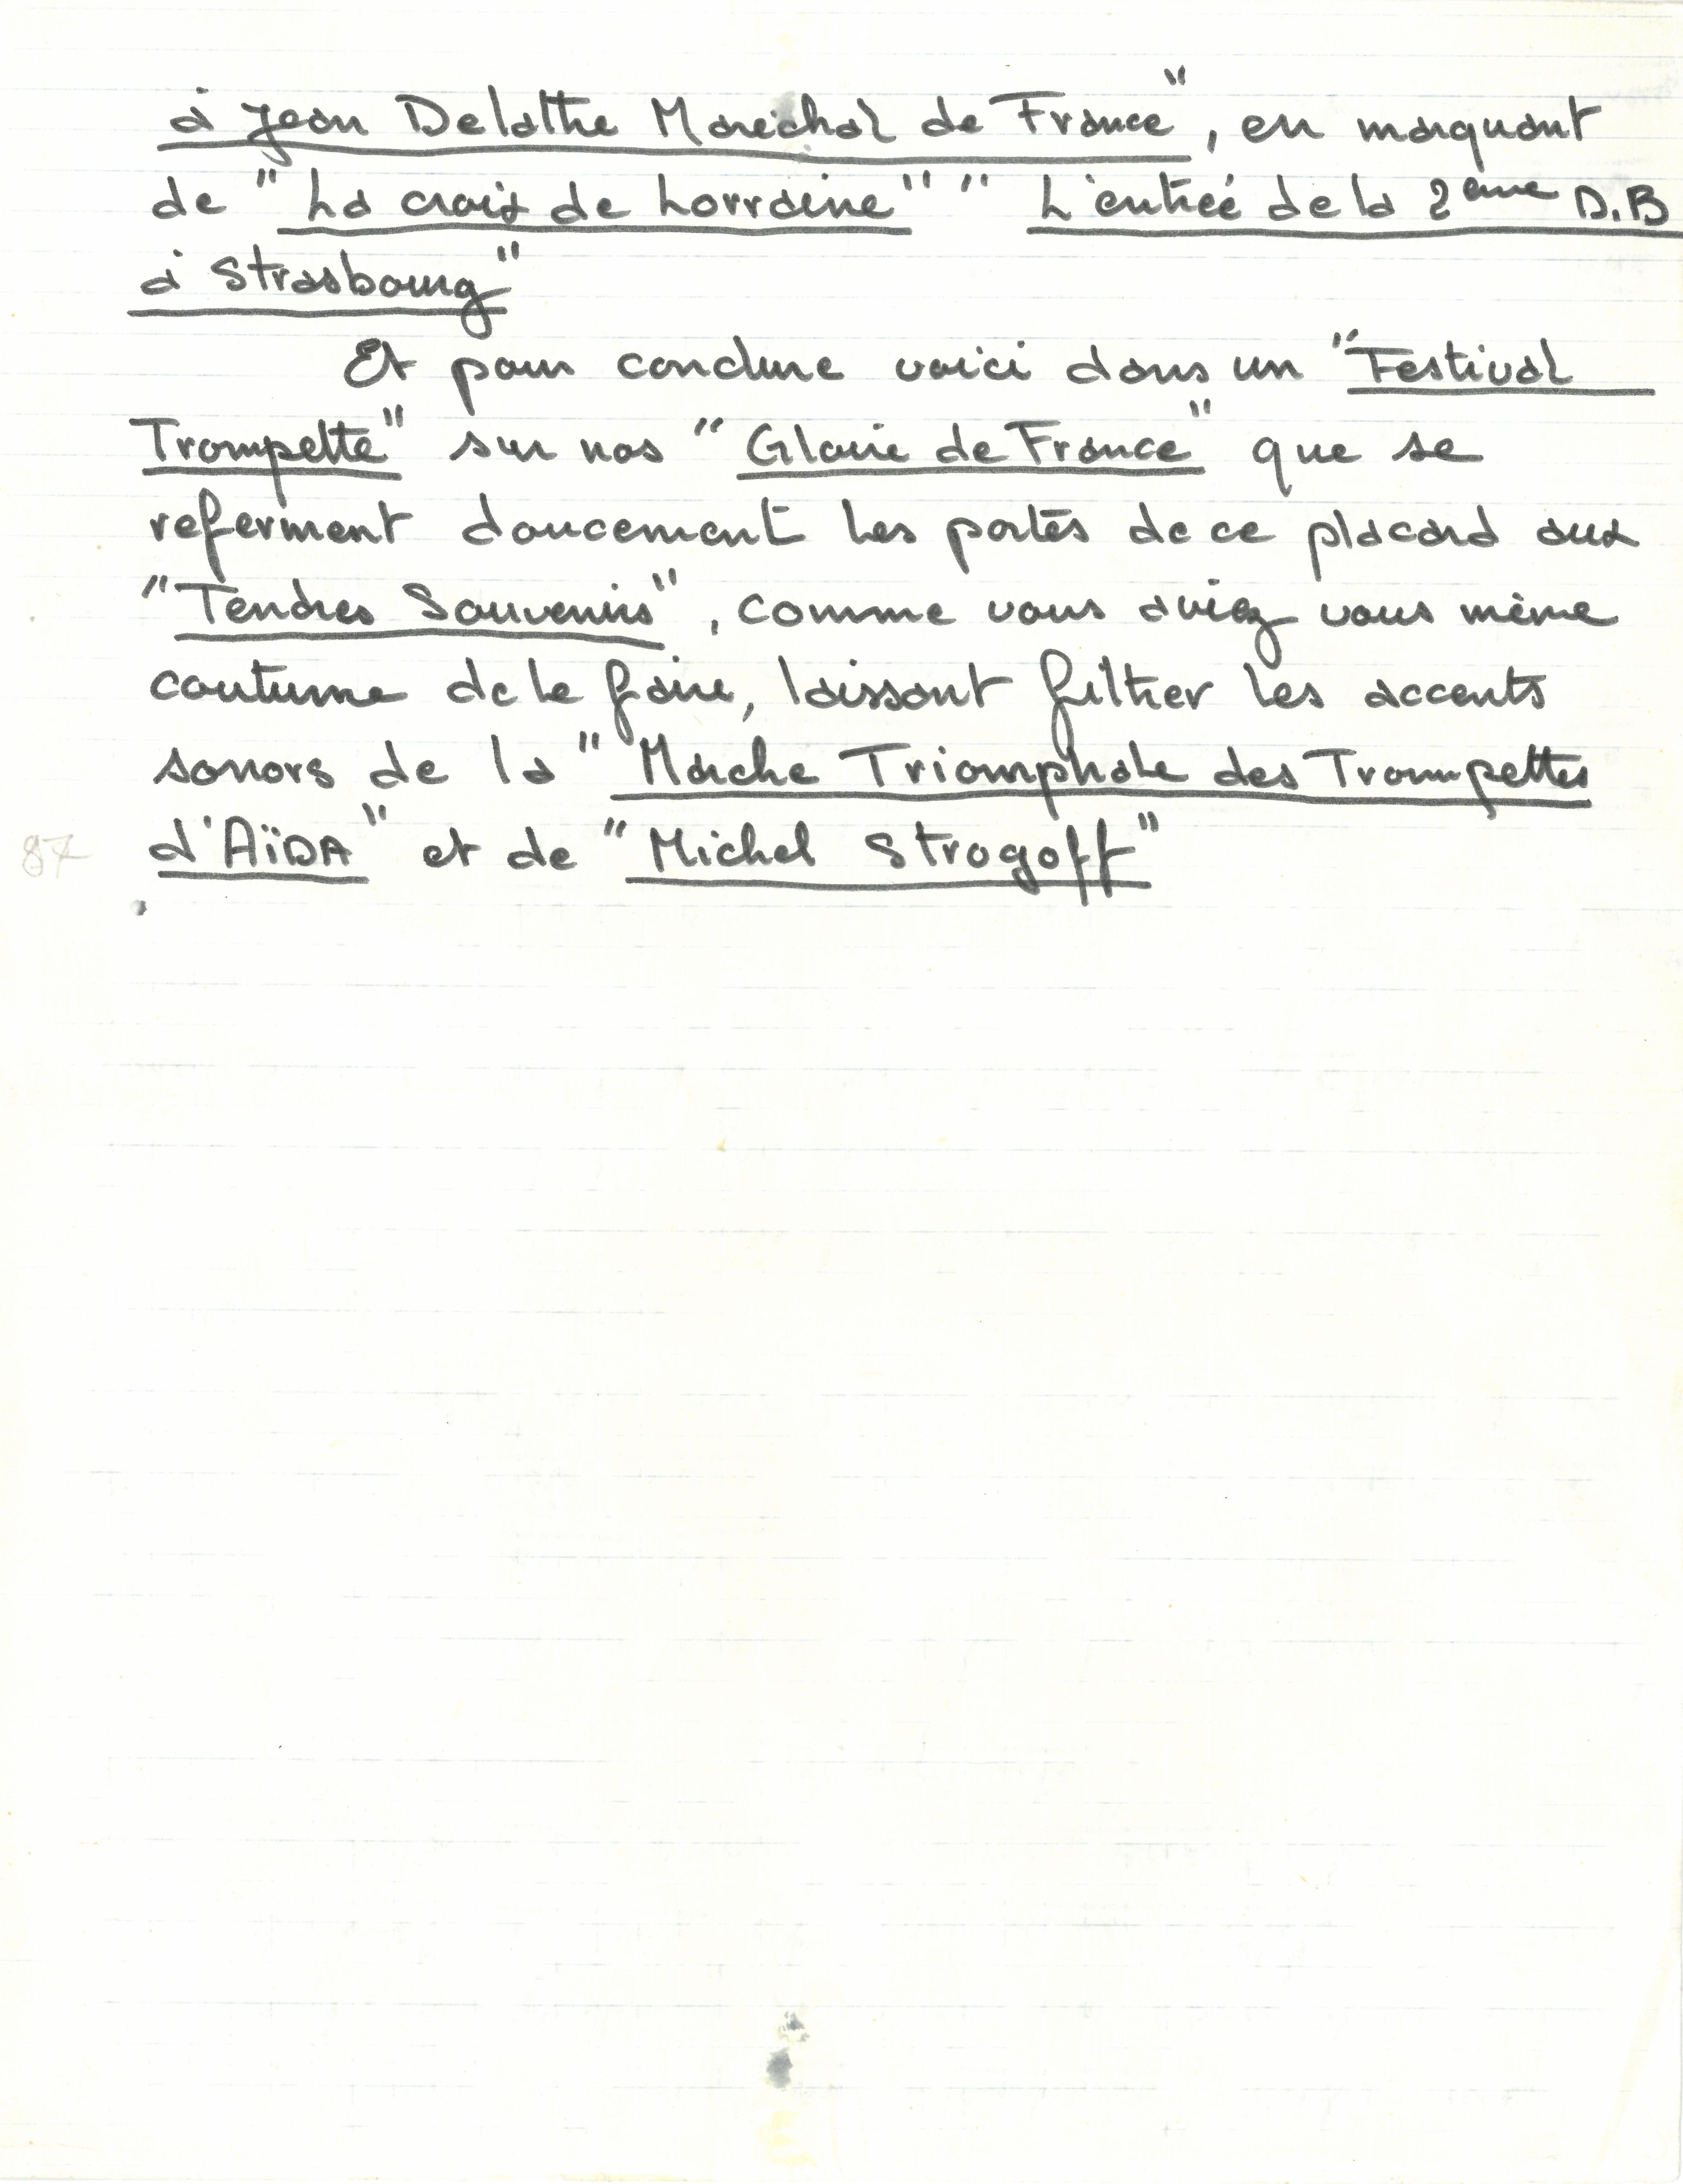 à Jean Delattre Maréchal de France", en marquant
de "La croix de Lorraine" " L'entrée de la 2ème D.B
à Strasbourg"
Et pour conclure voici dans un "Festival
Trompette" sur nos "Gloire de France" que se
referment doucement les portes de ce placard aux
"Tendres Souvenirs", comme vous aviez vous même
coutume de le faire, laissant filtrer les accents
sonors de la "Marche Triomphale des Trompettes
87 d'AïDA" et de "Michel Strogoff"